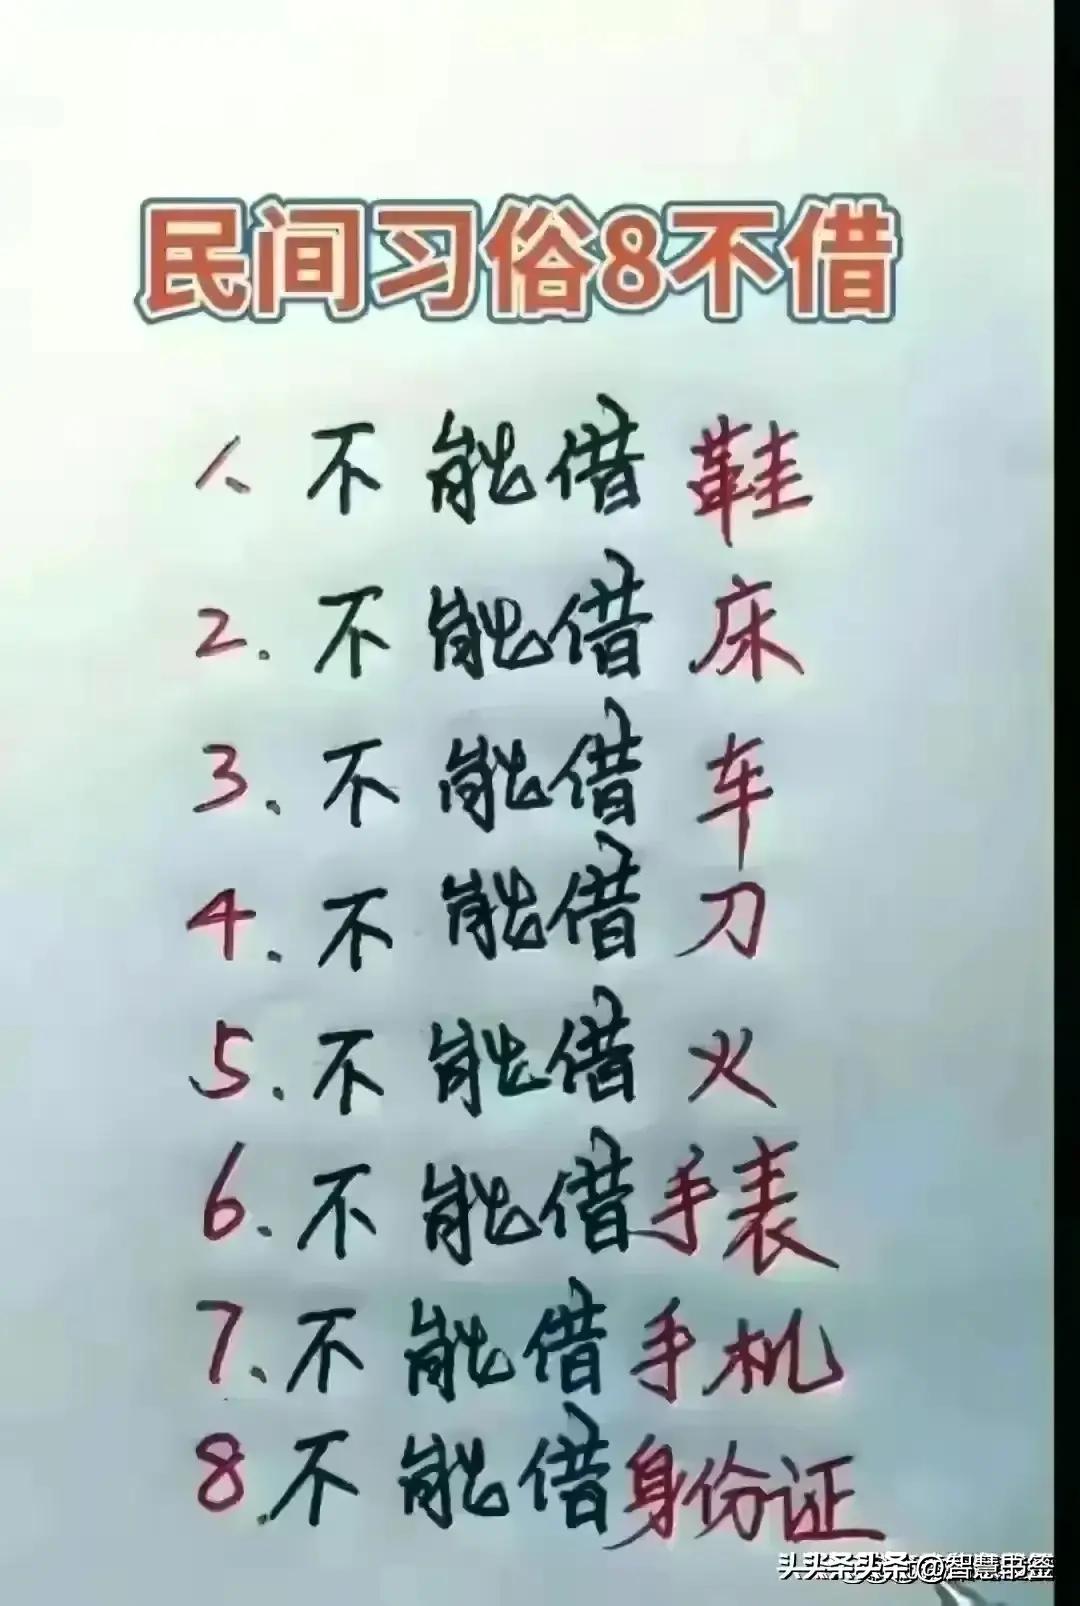 民间习俗8不借
1、不能借鞋
2.不能借床
3.不能借车
4.不能借刀
5.不能借火
6.不能借手表
7.不能借手机
8.不能借身份证